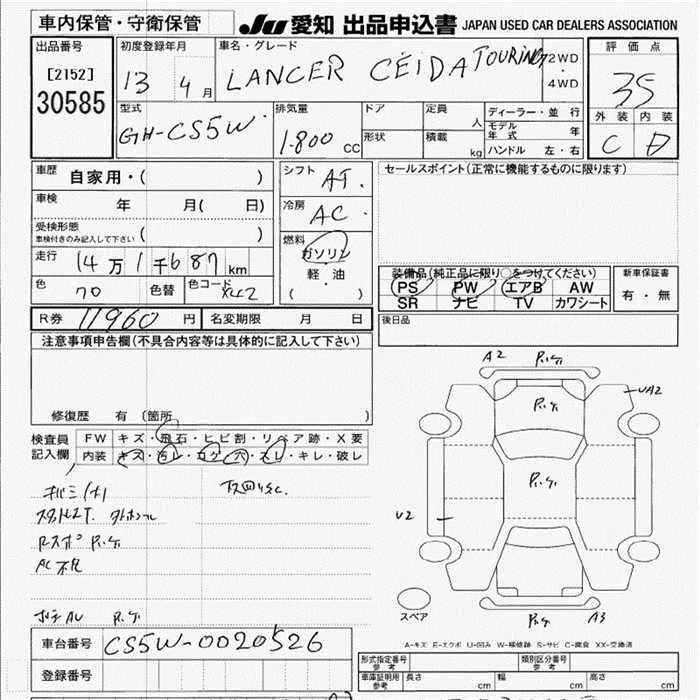 車内保管・守衛保管
JU 愛知 出品申込書 JAPAN USED CAR DEALERS ASSOCIATION
出品番号 初度登録年月 車名・グレード 評価点
[2152] 13 4月 LANCER CEIDA TOURING 2WD・4WD 35
30585
型式 排気量 ドア 定員 ディーラー・並行 外装 内装
GH-CS5W 1.800 CC 形状 人 モデル年式 年 C D
積載 kg ハンドル 左・右
車歴 自家用・( ) シフト AT. セールスポイント(正常に機能するものに限ります)
車検 年 月( 日) 冷房 AC.
受検形態 ( )
車検付きのみ記入して下さい
燃料 ガソリン
走行 14万1千687km 軽・油 装備品(純正品に限り○をつけてください) 新車保証書
色 70 色替 色コード X42 ( ) PS PW エアB AW 有・無
SR ナビ TV カワシート
R券 11960円 名変期限 月 日 後日品
注意事項申告欄(不具合内容等は具体的に記入して下さい)
A2
UA2
修復歴 有 (箇所 )
検査員記入欄 FW キズ・飛石・ヒビ割・リペア跡・X要
内装 キズ・汚レ・コゲ・穴・スレ・キレ・破レ
U2
AC不良
スペア
A3
A-キズ E-エクボ U-凹み W-補修跡 S-サビ C-腐食 XX-交換済
車台番号 CS5W-0020526
登録番号
形式指定番号 参考 類別区分番号 参考
車庫証明用 参考 長さ cm 幅 cm 高さ cm